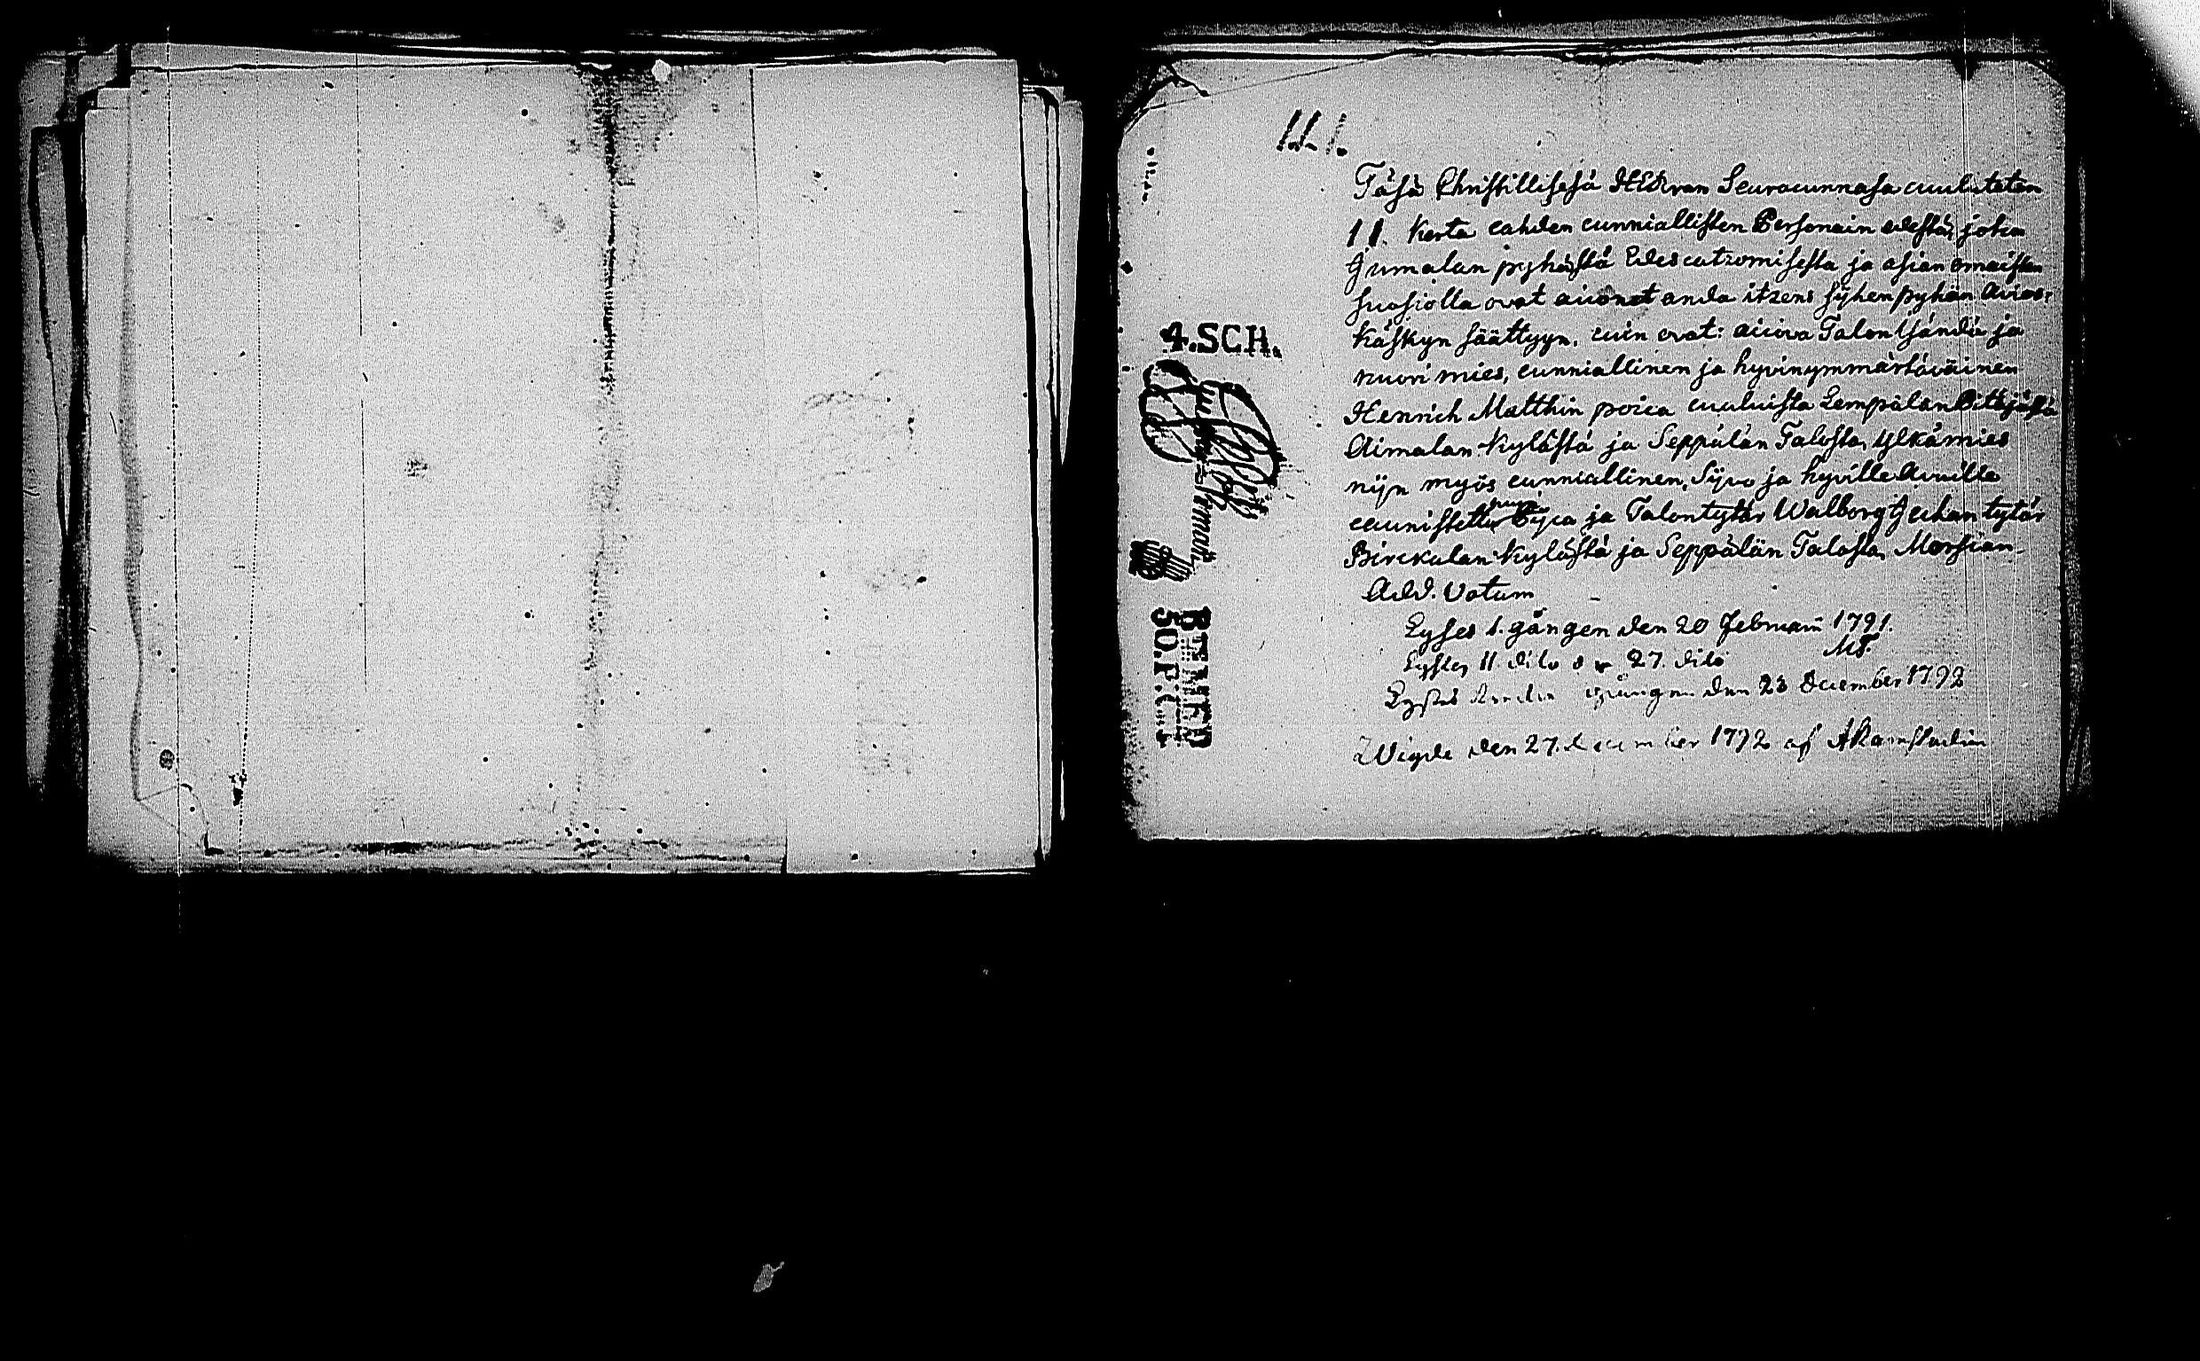 11.1.
Täsä Christillisesä HERran Seuracunnasa cuulutetan
11. Kerta cahden cunniallisten Personain edestä, jotca
Jumalan pyhästä Edescatzomisesta ja asian omaisten
suosiolla ovat aicónet anda itzens sijhen pyhän Avios-
käskyn säättyyn, cuin ovat: aicova Talon Isändä ja
nuori mies, cunniallinen ja hyvinymmärtäväinen
Henrich Matthin poica cuuluista Lempälän Pitäjästä
Aimalan Kylästä ja Seppälän Talosta, Ylkämies
nijn myös cunniallinen, Sijvo ja hyvillä Avuilla
caunistettu Pijca ja Talontytär Walborg Juhan tytär
Birckulan Kylästä ja Seppälän Talosta, Morsian
Add. Votum
Lyses 1. gången den 20 Februarii 1791.
Lystes 11. dito d. 27. dito
Lystes gången den 23 December 1792
Wigde den 27. december 1792 af
4.SCH.
BTEMED
50.P.C.T